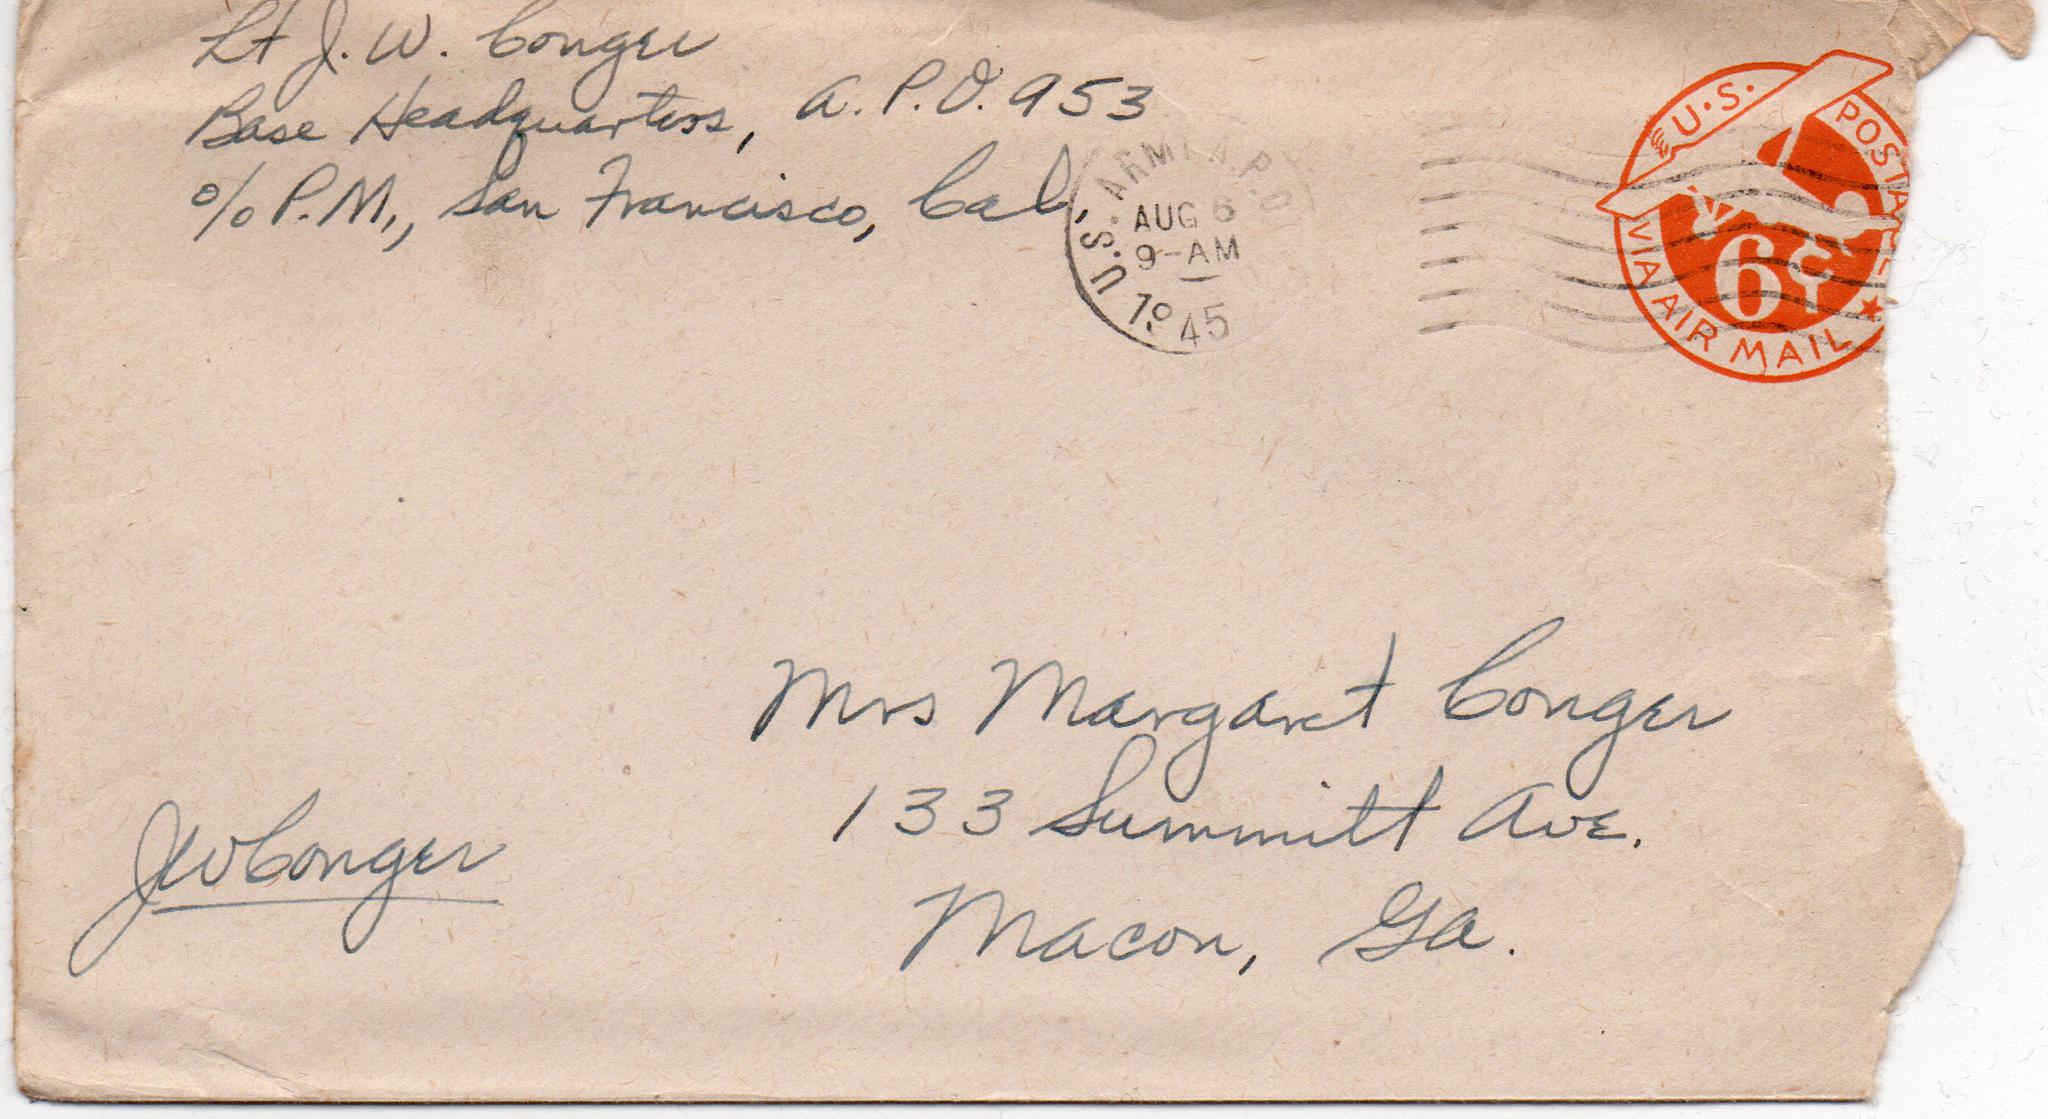 Lt J. W. Conger
Base Headquarters, A. P. O. 953
c/o P.M., San Francisco, Cal.
U.S. ARMY A.P.O.
AUG 6
9-AM
1945
U.S. POSTAGE
6¢
VIA AIR MAIL
Mrs Margaret Conger
133 Summitt Ave.
Macon, Ga.
JWConger